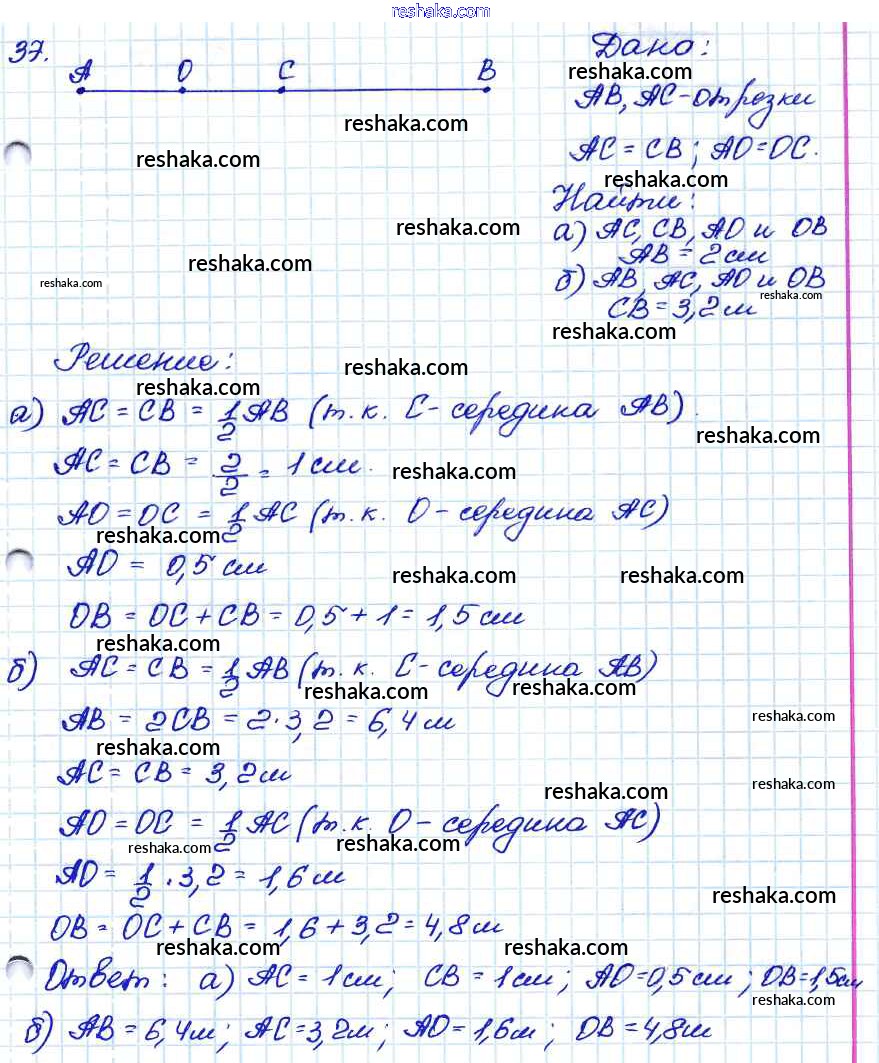 reshaka.com
37.
A O C B
Дано:
reshaka.com
AB, AC - отрезки
reshaka.com
reshaka.com
AC = CB; AO = OC.
reshaka.com
Найти:
reshaka.com
а) AC, CB, AO и OB
AB = 2 см
reshaka.com
б) AB, AC, AO и OB
reshaka.com
reshaka.com
CB = 3,2 м
reshaka.com
Решение:
reshaka.com
reshaka.com
а) AC = CB = 1/2 AB (т.к. C - середина AB).
reshaka.com
AC = CB = 2/2 = 1 см.
reshaka.com
AO = OC = 1/2 AC (т.к. O - середина AC)
reshaka.com
AO = 0,5 см
reshaka.com reshaka.com
OB = OC + CB = 0,5 + 1 = 1,5 см
reshaka.com
б) AC = CB = 1/2 AB (т.к. C - середина AB)
reshaka.com reshaka.com
AB = 2CB = 2·3,2 = 6,4 м
reshaka.com
reshaka.com
AC = CB = 3,2 м
reshaka.com
reshaka.com
AO = OC = 1/2 AC (т.к. O - середина AC)
reshaka.com reshaka.com
AO = 1/2 · 3,2 = 1,6 м
reshaka.com
OB = OC + CB = 1,6 + 3,2 = 4,8 м
reshaka.com reshaka.com
Ответ: а) AC = 1 см; CB = 1 см; AO = 0,5 см; OB = 1,5 см
reshaka.com
б) AB = 6,4 м; AC = 3,2 м; AO = 1,6 м; OB = 4,8 м